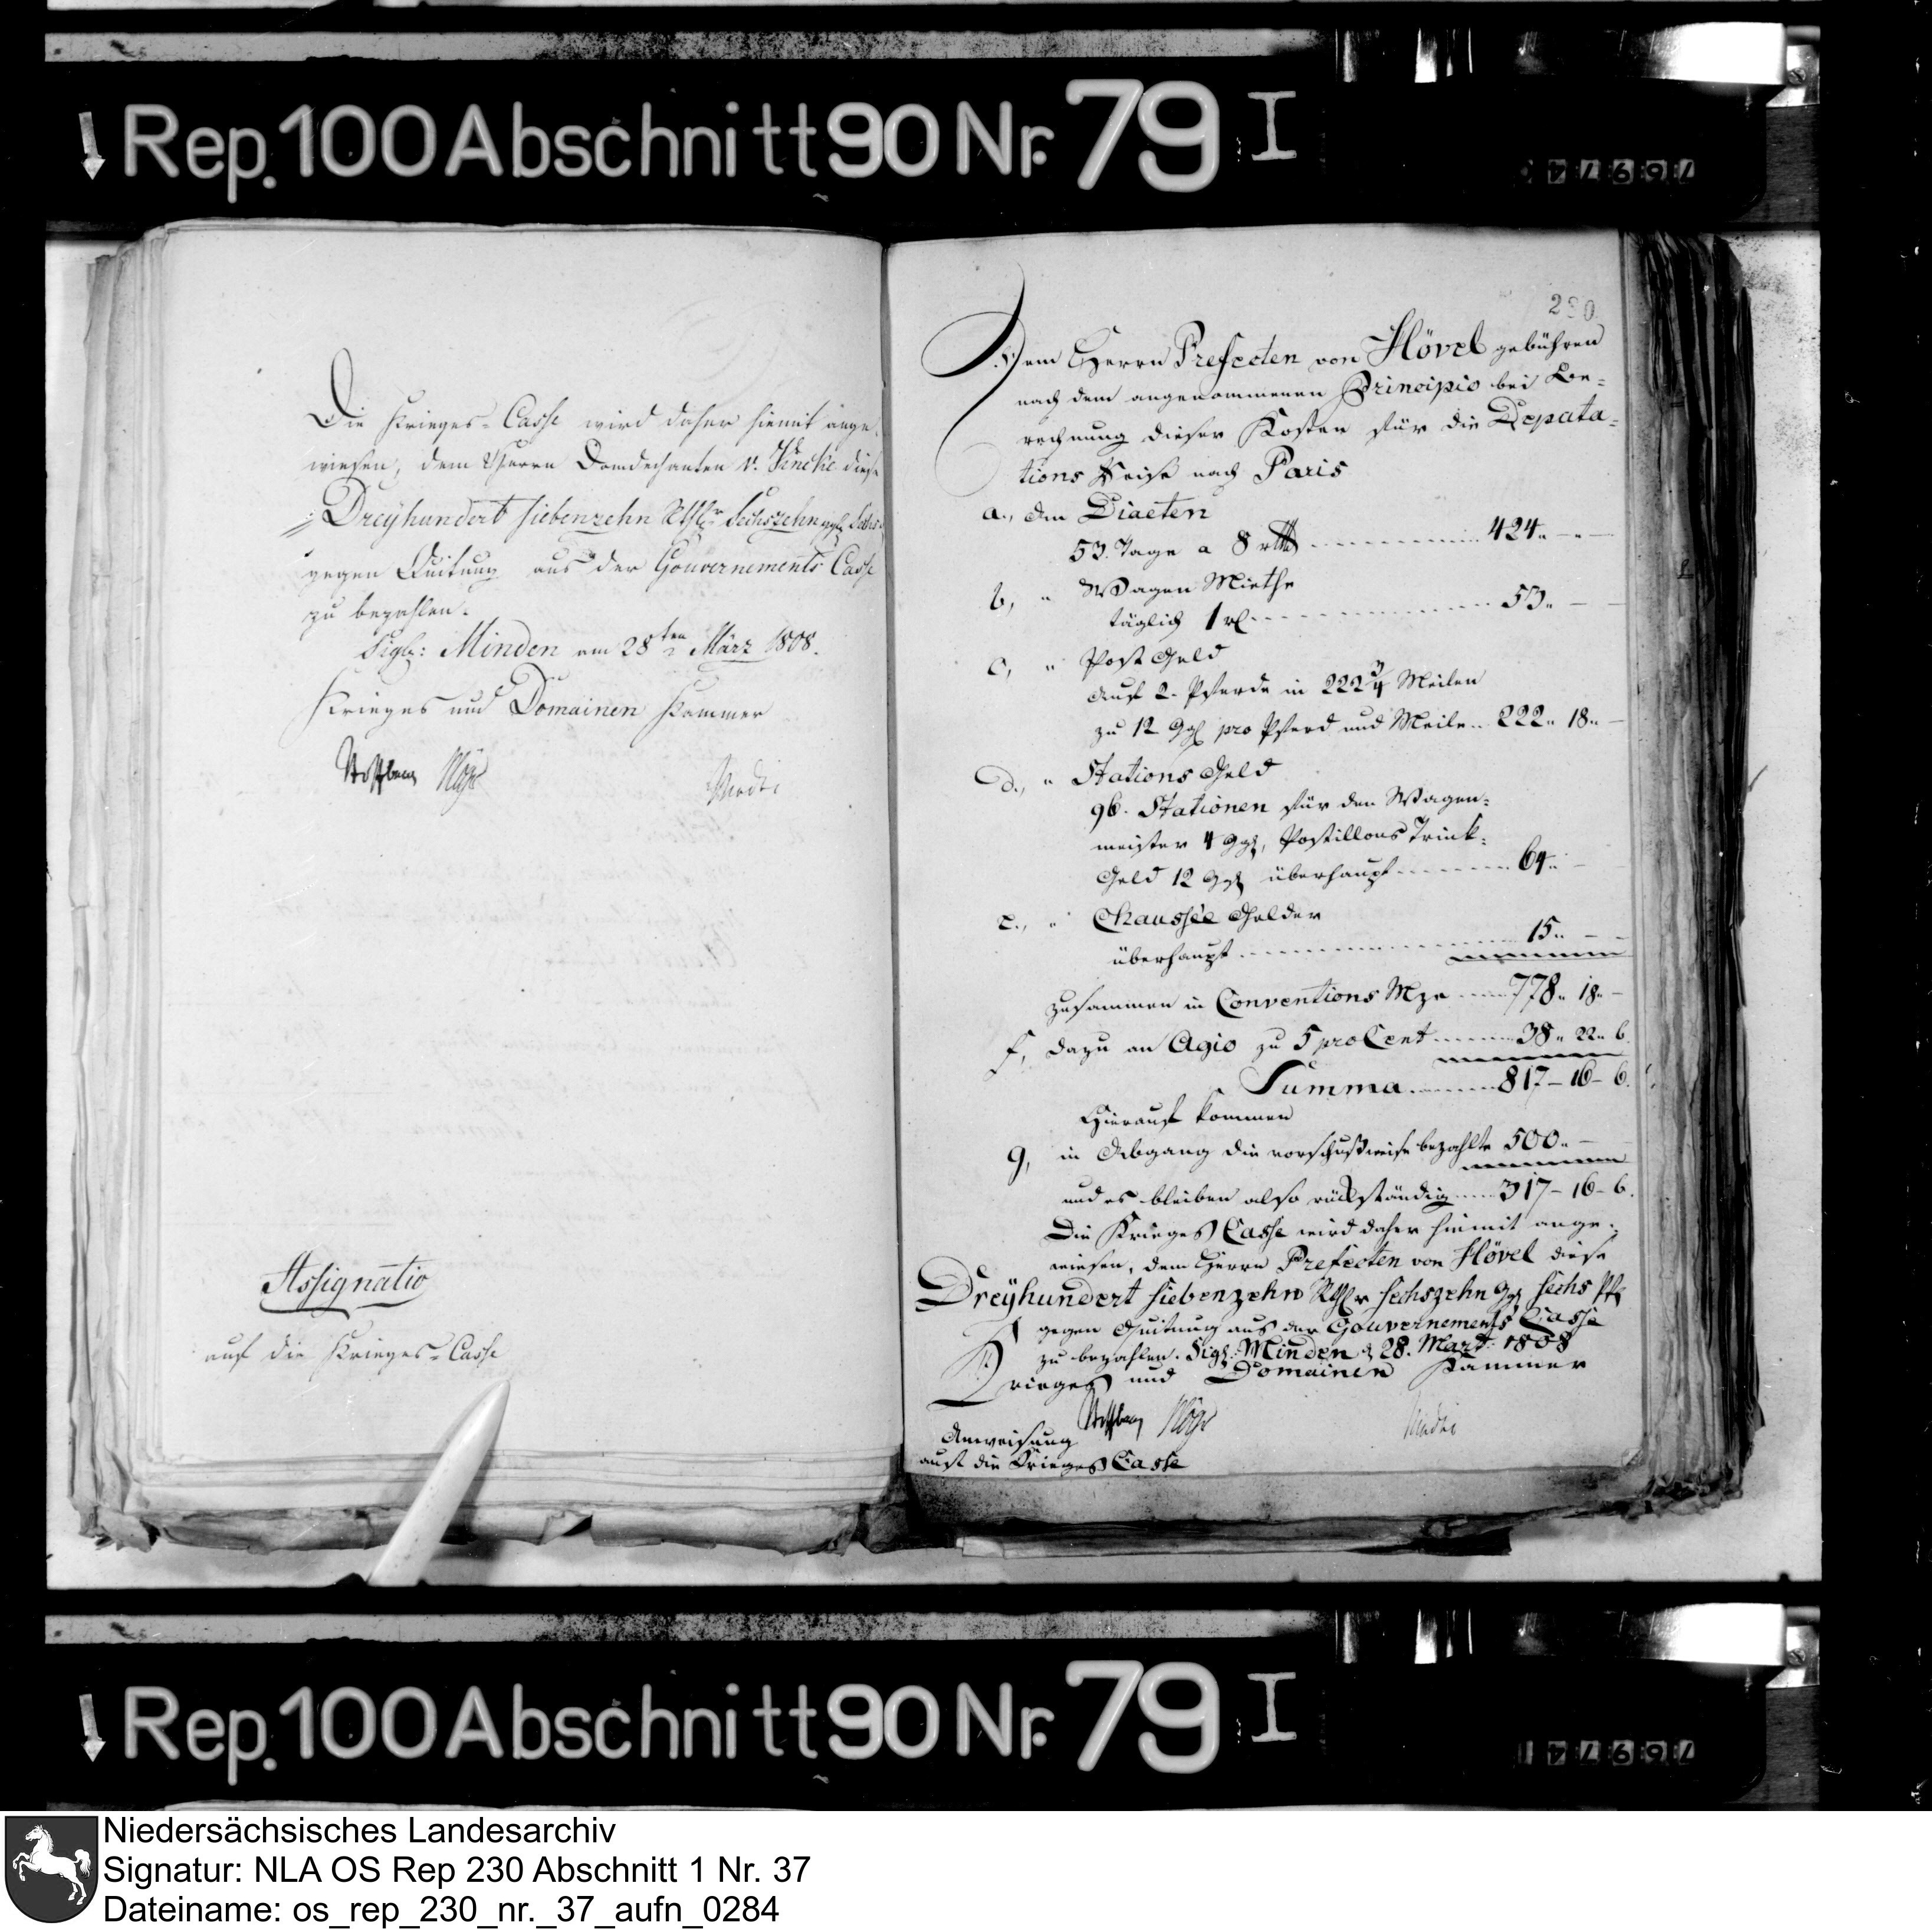 Rep. 100 Abschnitt 90 Nr. 79 I
Die Krieges-Casse wird daher hiemit ange-
wiesen, dem Herrn Domdechanten v. Vincke diese
Dreyhundert siebenzehn Rthlr Sechszehn ggl Sechs
gegen Quitung aus der Gouvernements Casse
zu bezahlen.
Sigl: Minden am 28ten März 1808.
Krieges und Domainen Kammer
Assignatio
auf die Krieges-Casse
230.
Dem Herrn Prefecten von Hövel gebühren
nach dem angenommenen Principio bei Be-
rechnung dieser Kosten für die Deputa-
tions Reise nach Paris
a., an Diaeten
53. Tage a 8 rthl 424.. — . —
b, " Wagen Miethe
täglich 1 rl 53.. — —
c, " Post Geld
Auf 2. Pferde in 222 3/4 Meilen
zu 12 Ggl pro Pferd und Meile 222.. 18.. —
d., " Stations Geld
96. Stationen für den Wagen-
meister 4 ggl, Postillons Trink-
Geld 12 ggl überhaupt 64.. —
e., " Chaussée Gelder
überhaupt 15.. — —
zusammen in Conventions Mze 778.. 18.. —
f, dazu an Agio zu 5 pro Cent 38.. 22.. 6.
Summa 817 – 16 – 6.
Hierauf kommen
g, in Abgang die vorschußweise bezahlte 500.. —
und es bleiben also rückständig 317 – 16 – 6.
Die Krieges Casse wird daher hiemit ange-
wiesen, dem Herrn Prefecten von Hövel diese
Dreyhundert siebenzehn Rthlr sechszehn ggl sechs Pf
gegen Quitung aus der Gouvernements Casse
zu bezahlen. Sigl: Minden d 28. Mart: 1808
Krieges und Domainen Kammer
Anweisung
auf die Krieges Casse
Rep. 100 Abschnitt 90 Nr. 79 I
Niedersächsisches Landesarchiv
Signatur: NLA OS Rep 230 Abschnitt 1 Nr. 37
Dateiname: os_rep_230_nr._37_aufn_0284